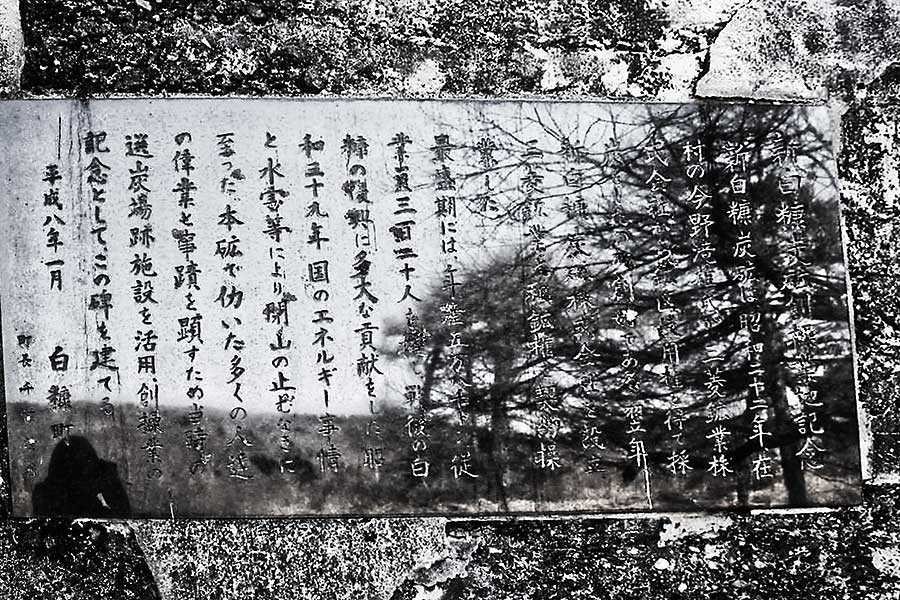 新白糠炭砿 記念
新白糠炭砿は昭和二十二年在
村の今野 三菱鉱業株
式会社 使用権 得て採
創業である翌年
新白糠炭砿株式会社を設立
三菱鉱業 鉱業権 操
業した
最盛期には年産五万八千トン従
業員三百二十人を擁し戦後の白
糠の復興に多大な貢献をした昭
和三十九年国のエネルギー事情
と水害等により閉山の止むなきに
至った 本砿で仂いた多くの人達
の偉業と事蹟を顕すため当時の
選炭場跡施設を活用、創操業の
記念としてこの碑を建てる
平成八年一月 白糠町
町長